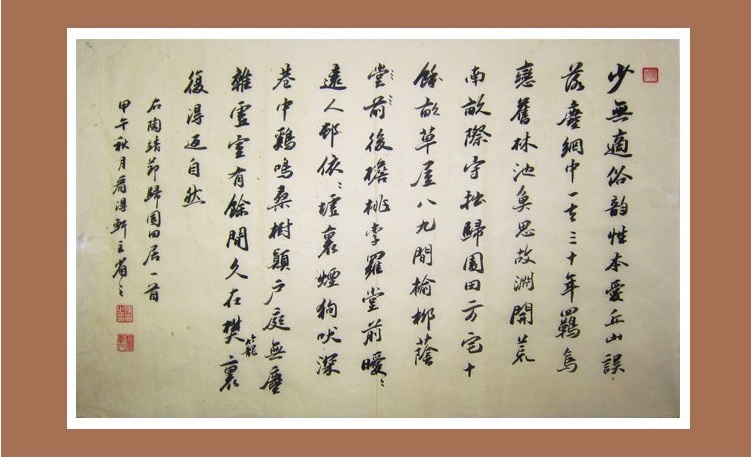 少無適俗韵性本愛丘山誤
落塵網中一去三十年羈鳥
戀舊林池魚思故淵開荒
南畝際守拙歸園田方宅十
餘畝草屋八九間榆柳蔭
堂前後檐桃李羅堂前曖〻
遠人邨依〻墟裏煙狗吠深
巷中鷄鳴桑樹顛户庭無塵
雜虛室有餘閒久在樊籠裏
復得返自然
右陶靖節歸園田居一首
甲午秋月得軒主